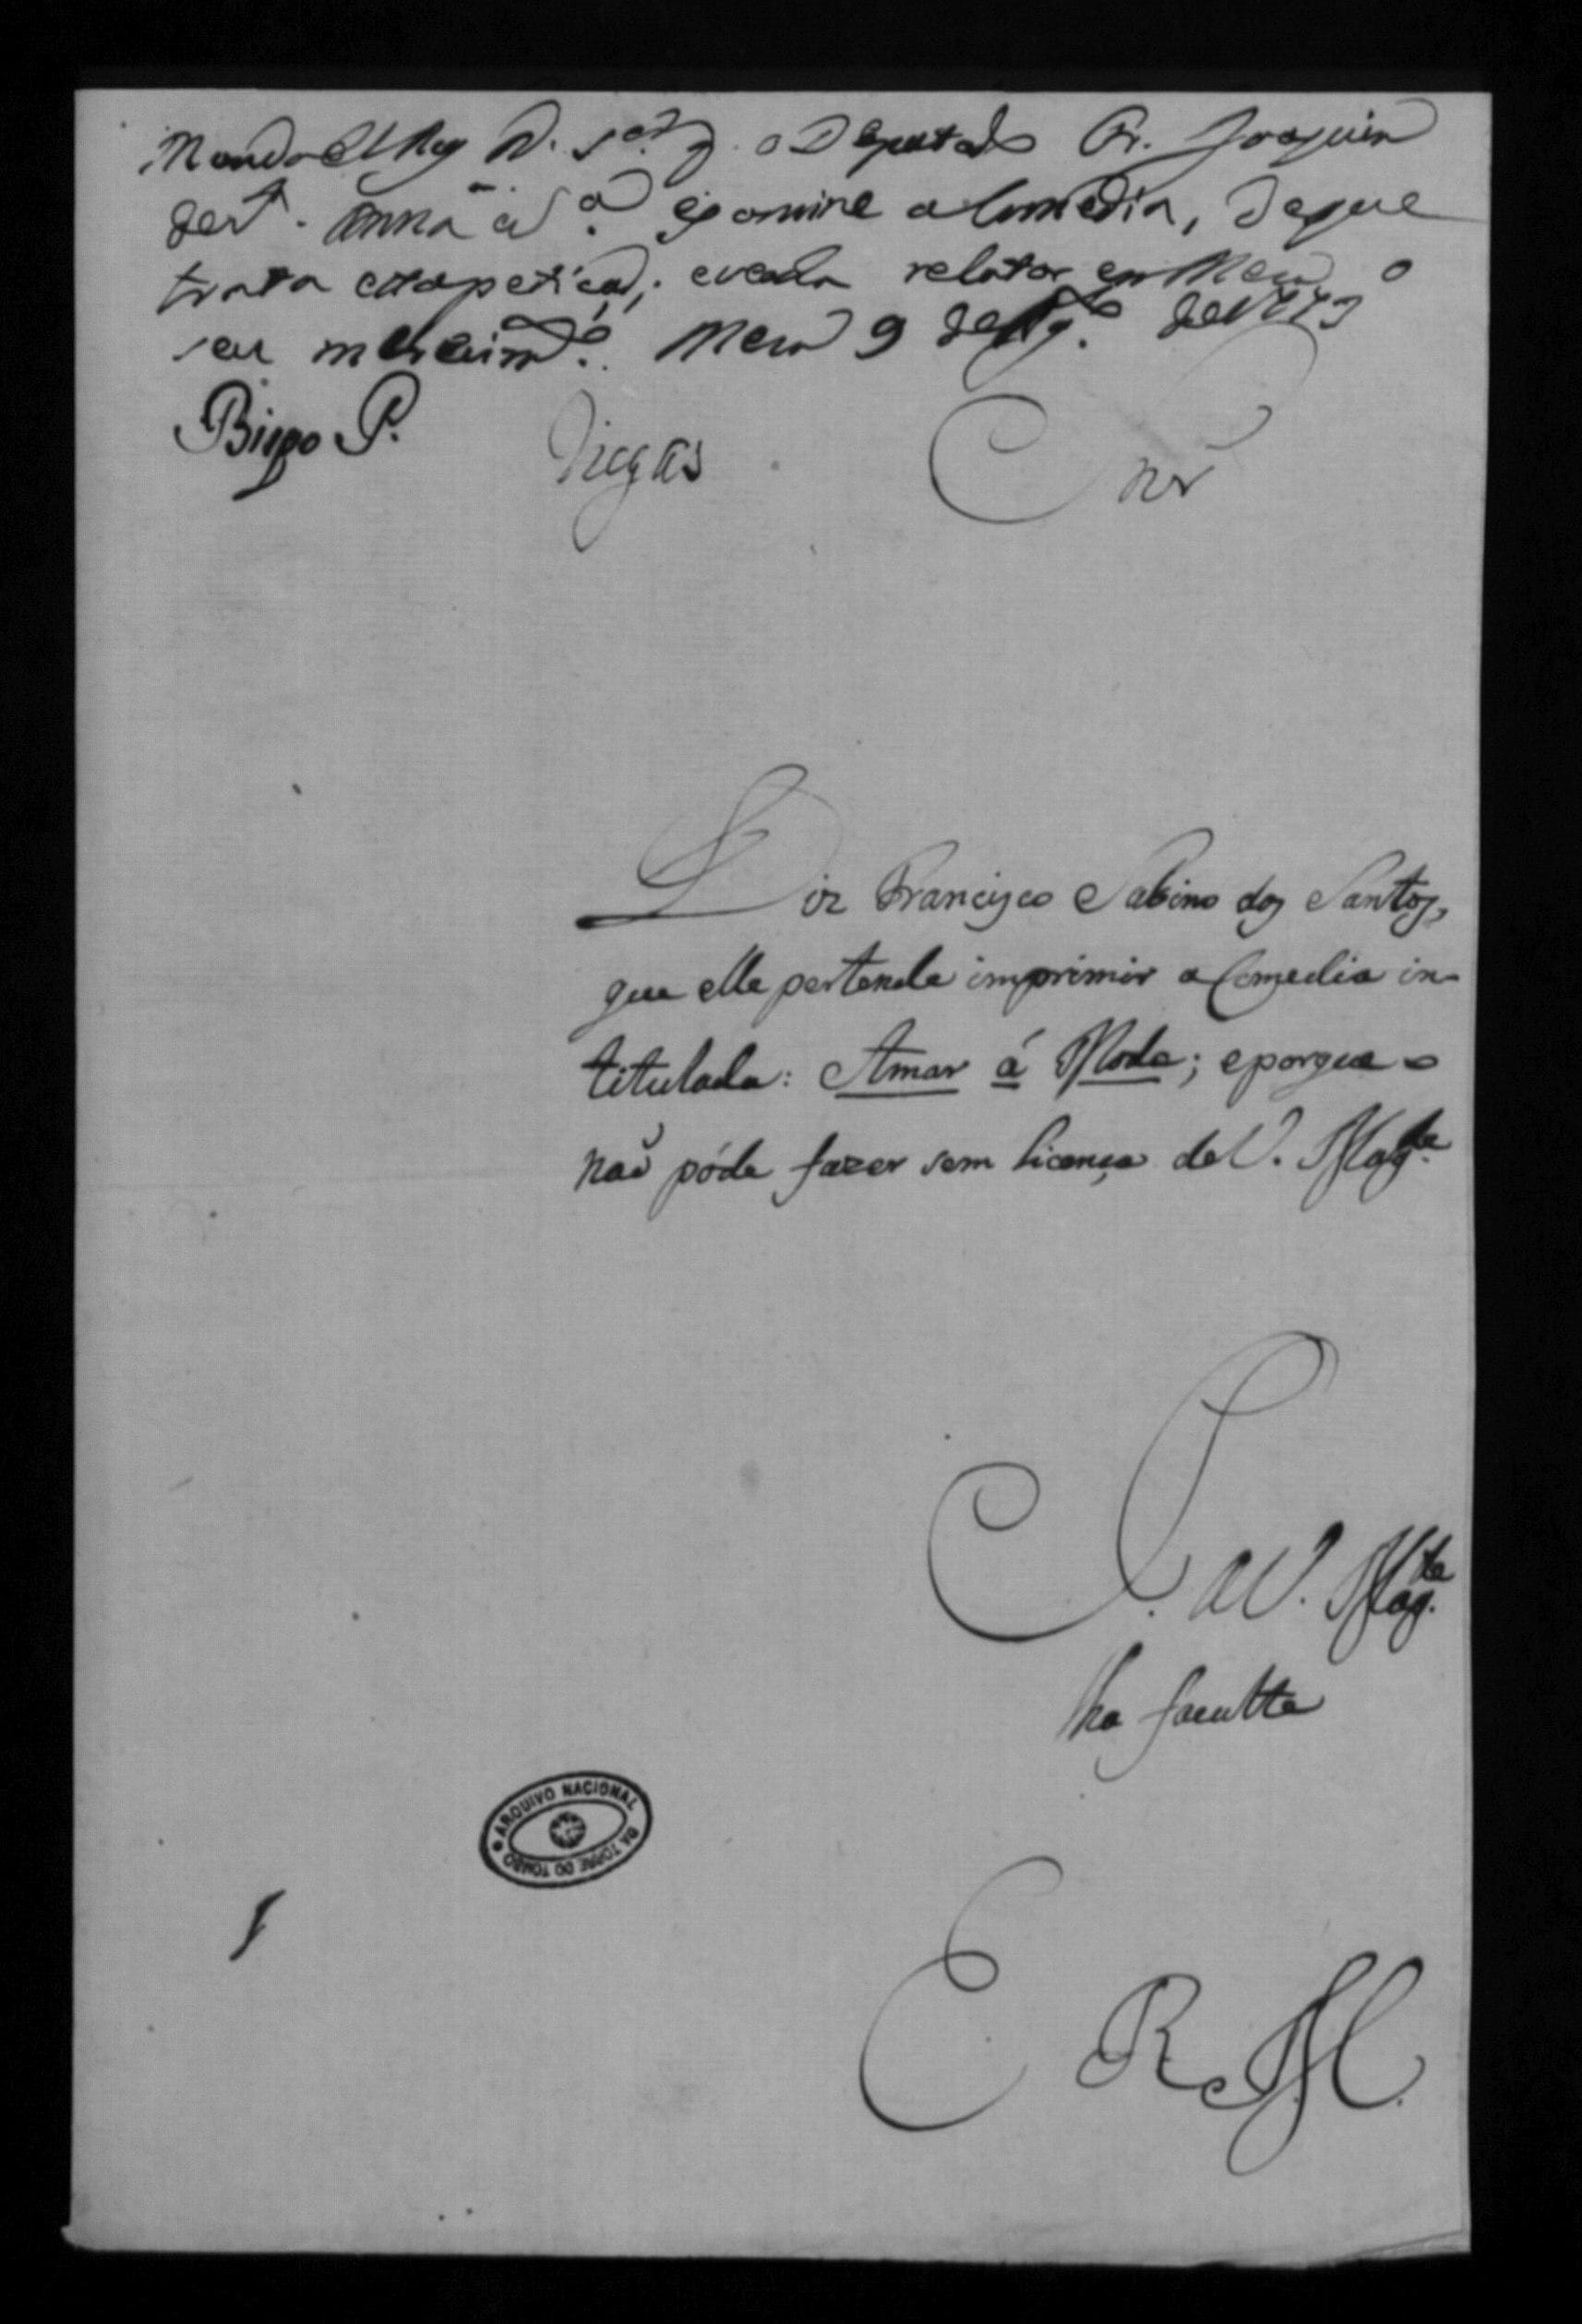 Manda El Rey N. Sor. q. o Deputado Fr. Joaquim
de S. Anna e Sa. examine a Comedia, de que
trata esta petição; e venha relatar em Meza o
seu merecimto. Meza 9 de Agto. de 1773
Bispo P. Viegas
Diz Francisco Sabino dos Santos,
que elle pertende imprimir a Comedia in-
titulada: Amar á Moda; e porque o
naõ póde fazer sem licença de V. Magde.
P. a V. Magde.
lha faculte
E R M.
ARQUIVO NACIONAL
DA TORRE DO TOMBO